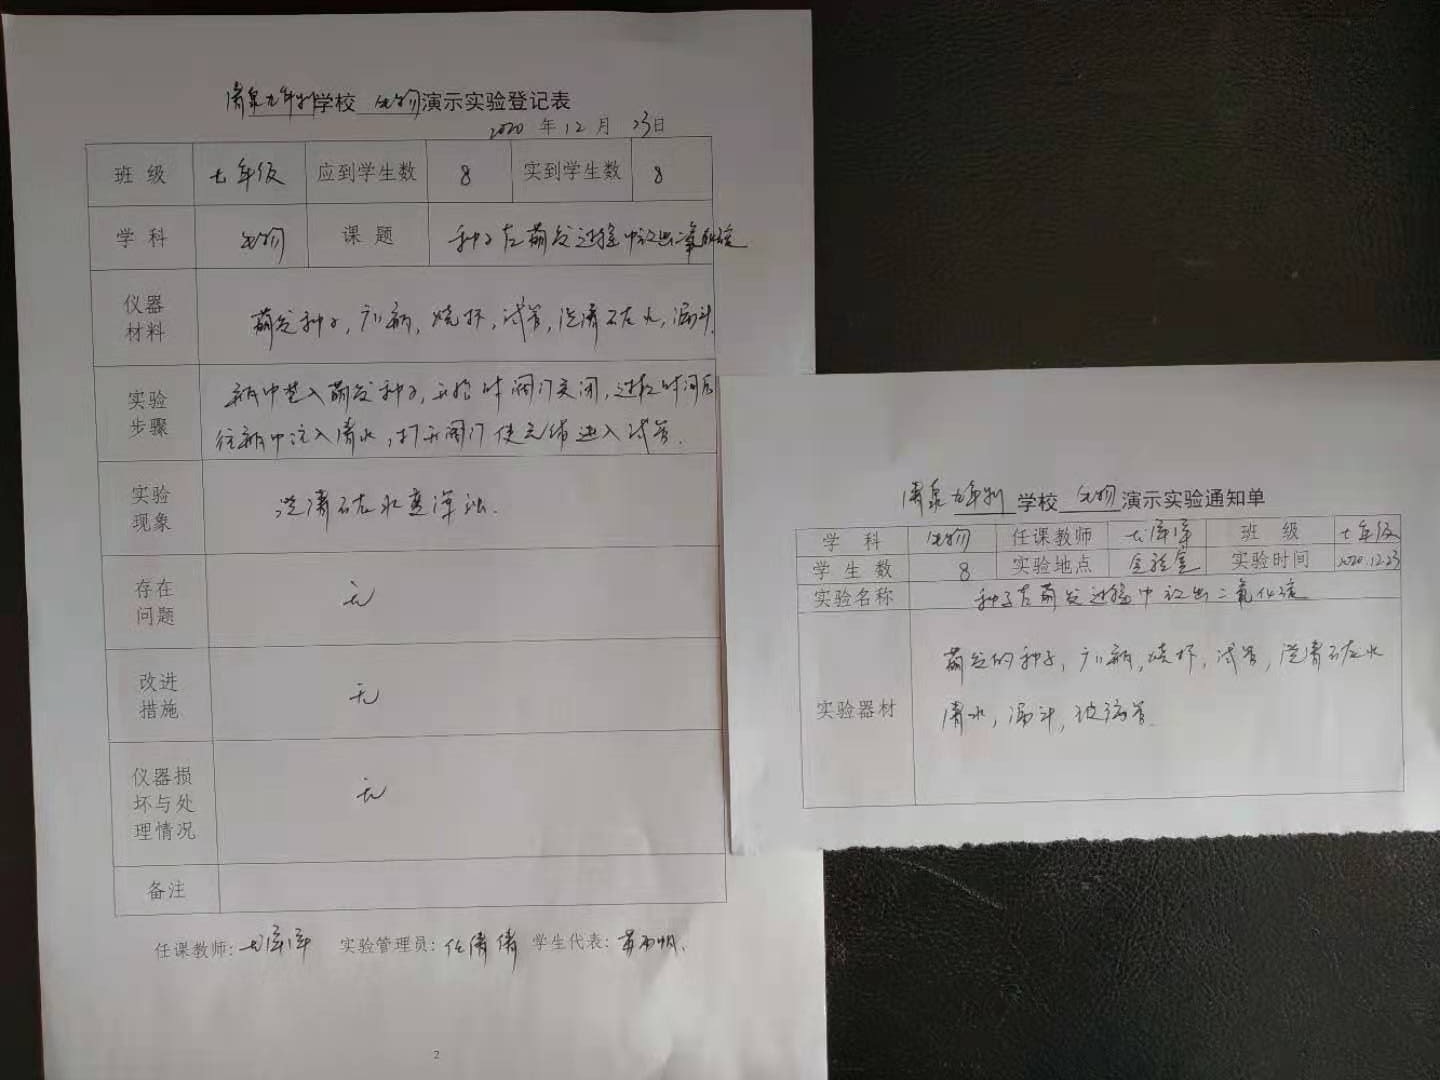 清泉九年制学校 生物 演示实验登记表
2020 年 12 月 23日
班 级 七年级 应到学生数 8 实到学生数 8
学 科 生物 课 题 种子在萌发过程中放出二氧化碳
仪器
材料
萌发种子,广口瓶,烧杯,试管,澄清石灰水,漏斗.
实验
步骤
瓶中装入萌发种子,开始时阀门关闭,过段时间后
往瓶中注入清水,打开阀门使气体进入试管.
实验
现象
澄清石灰水变浑浊.
存在
问题
无
改进
措施
无
仪器损
坏与处
理情况
无
备注
任课教师: 实验管理员:任倩倩 学生代表:
2
清泉九年制 学校 生物 演示实验通知单
学 科 生物 任课教师 班 级 七年级
学 生 数 8 实验地点 实验室 实验时间 2020.12.23
实验名称 种子在萌发过程中放出二氧化碳
实验器材
萌发的种子,广口瓶,烧杯,试管,澄清石灰水
清水,漏斗,玻璃管.